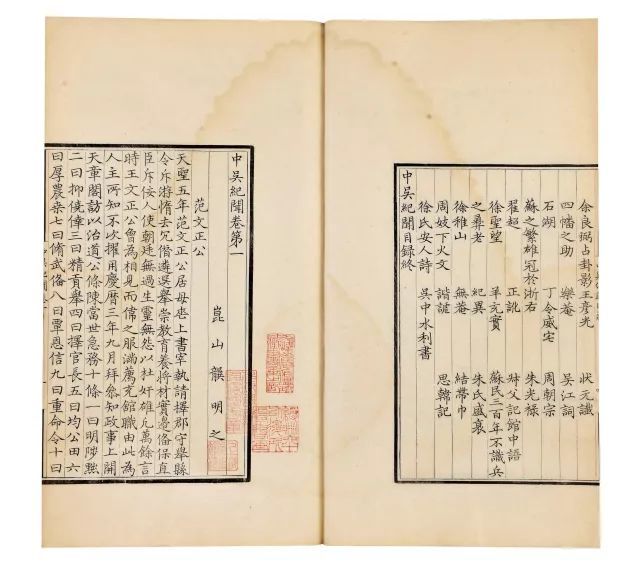 余良弼占卦影王彥光 狀元讖
四幡之助 樂菴 吳江詞
石湖 丁令威宅 周朝宗
蘇之繁雄冠於浙右 朱光祿
翟超 正訛 叔父記館中語
徐聖望 羊充實 蘇民三百年不識兵
之彝老 紀異 朱氏盛衰
徐稚山 無菴 結帶巾
周妓下火文 諧謔 思韓記
徐氏安人詩 吳中水利書
中吳紀聞目錄終
中吳紀聞卷第一
崑山 龔明之
范文正公
天聖五年范文正公居母喪上書宰執請擇郡守舉縣
令斥游惰去冗僭遴選舉崇教育養將材實邊俻保直
臣斥佞人使朝廷無過生靈無怨以杜奸雄凢萬餘言
時王文正公曾為相見而偉之服滿薦充館職由此為
人主所知不次擢用慶曆三年九月拜叅知政事上開
天章閣訪以治道公條陳當世急務十條一曰明陟黜
二曰抑僥倖三曰精貢舉四曰擇官長五曰均公田六
曰厚農桒七曰脩武俻八曰覃恩信九曰重命令十曰